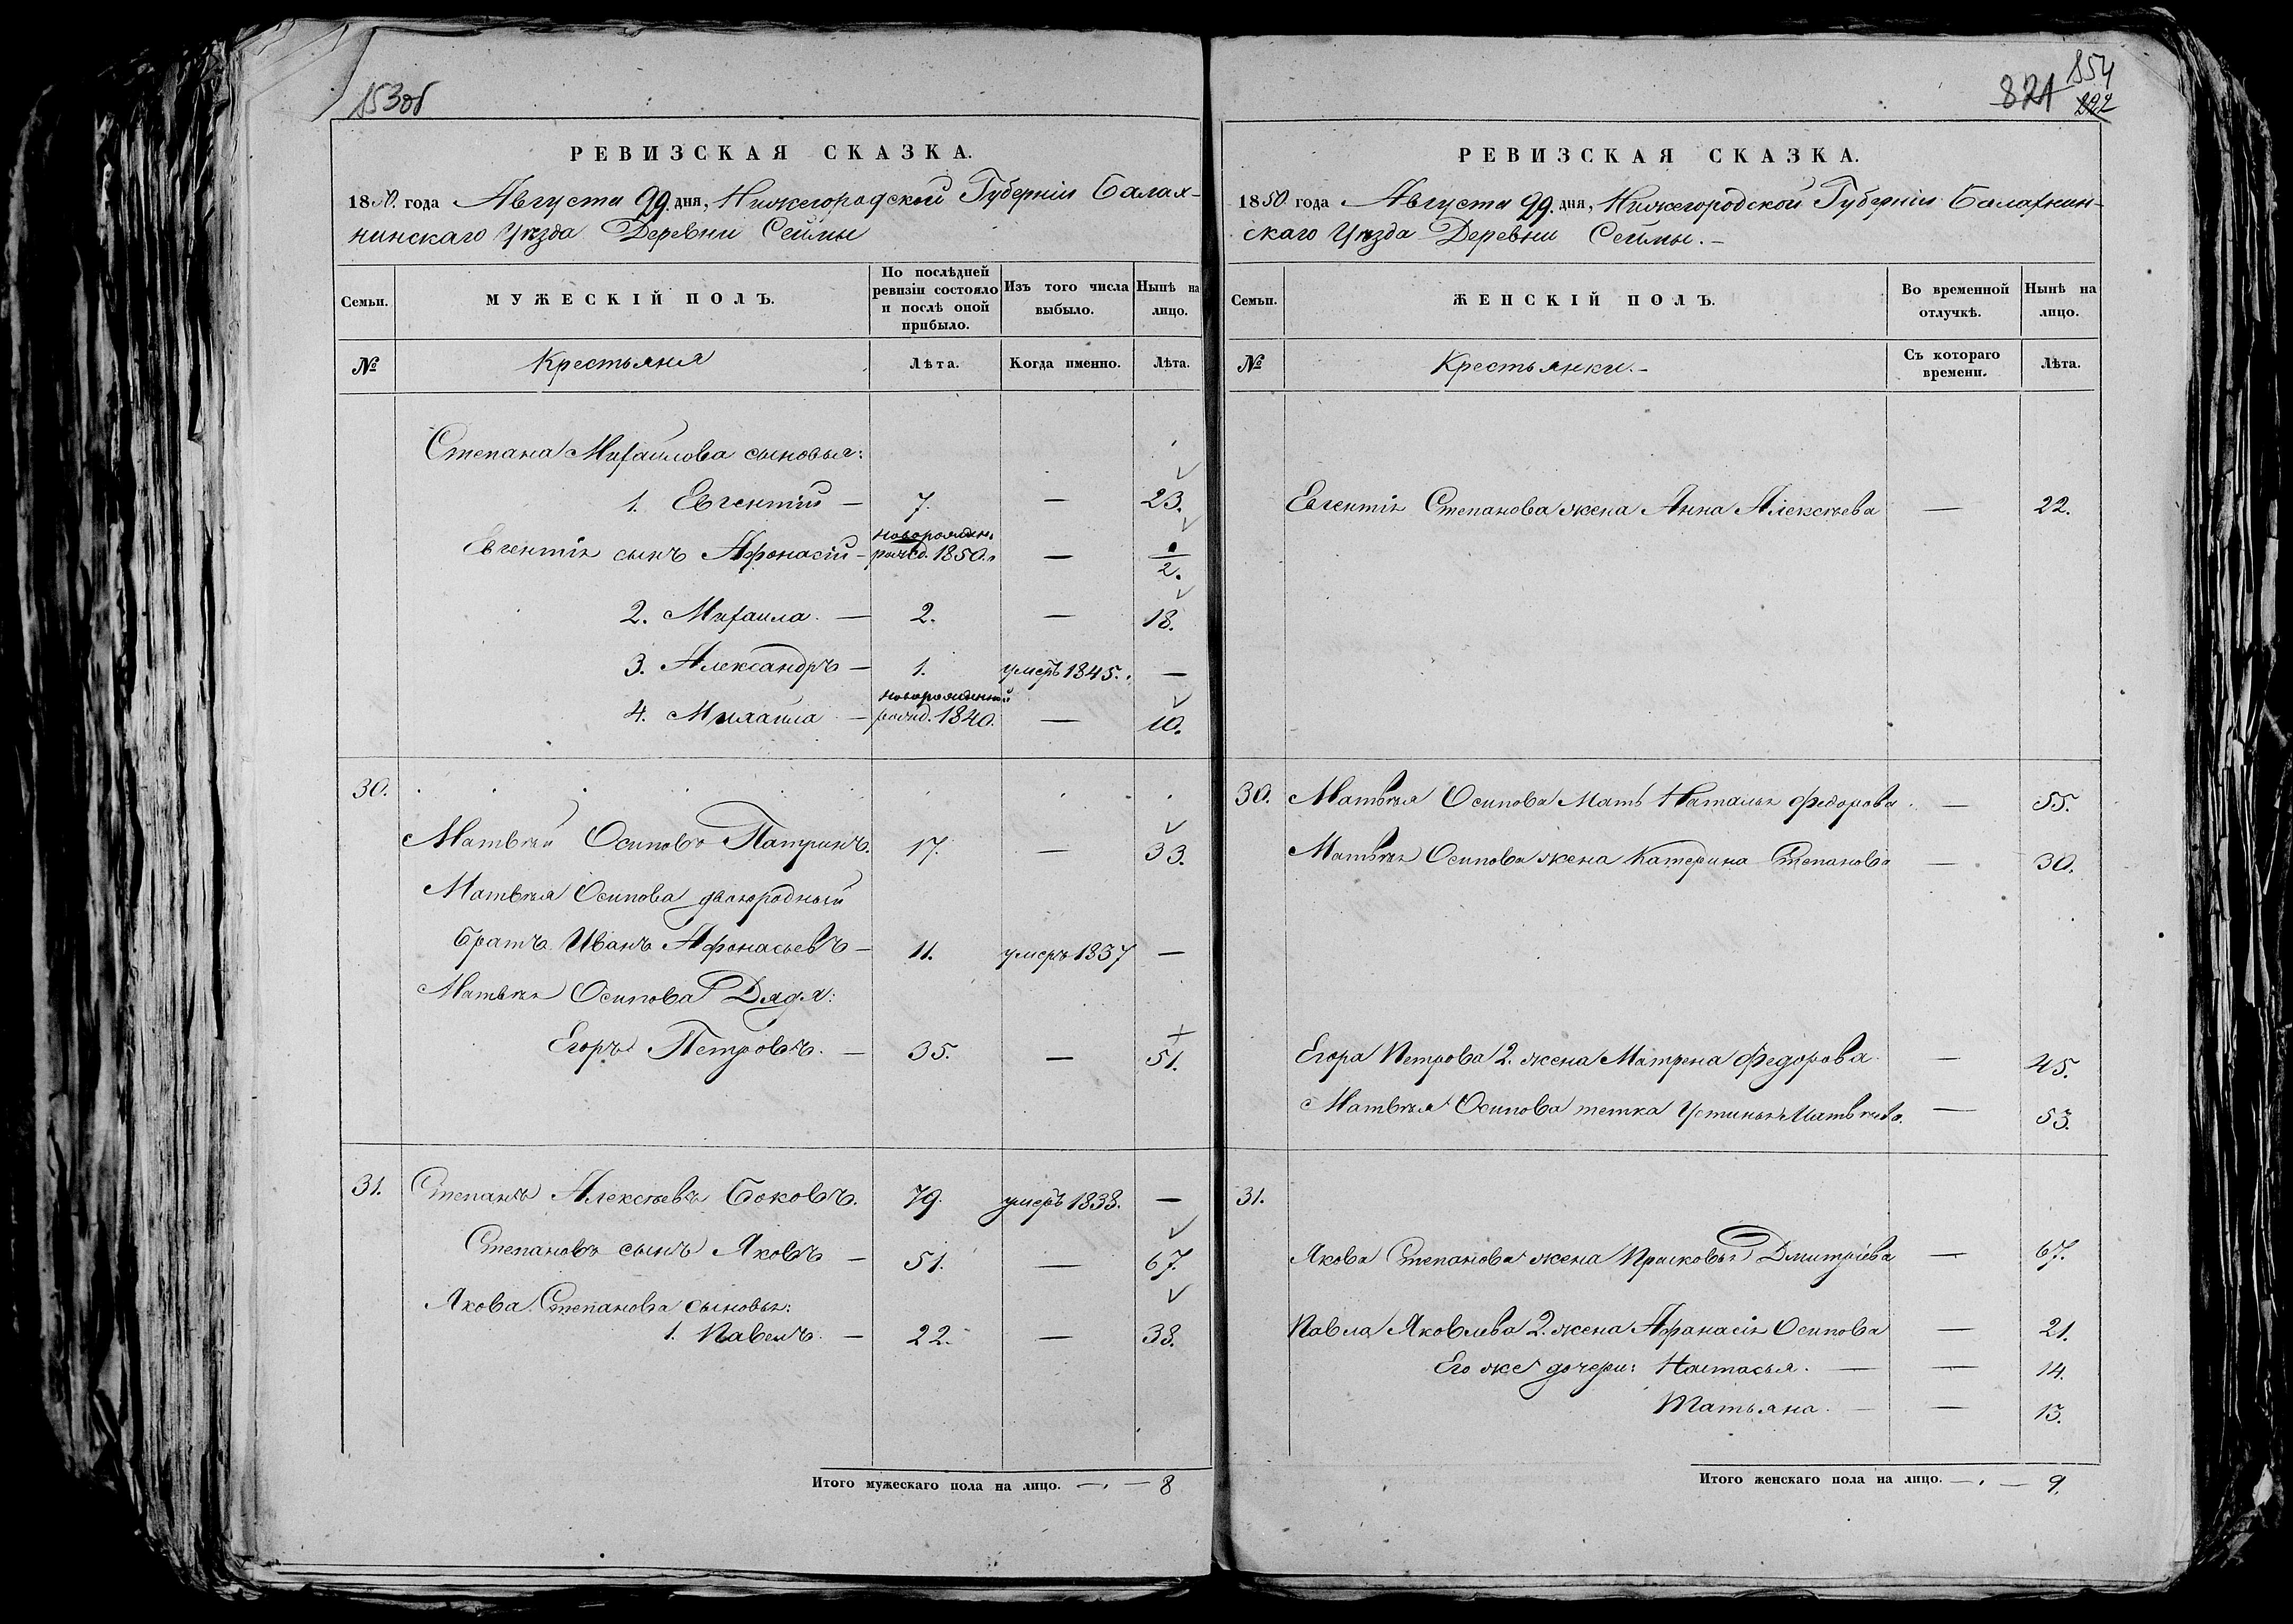 153об
РЕВИЗСКАЯ СКАЗКА.
1850. года Августа 29. дня, Нижегородской Губернiи Балах-
нинскаго Уѣзда Деревни Сеймы
Семьи.
МУЖЕСКІЙ ПОЛЪ.
По послѣдней ревизіи состояло и послѣ оной прибыло.
Изъ того числа выбыло.
Нынѣ на лицо.
№ Крестьяня Лѣта. Когда именно. Лѣта.
Степана Михаилова сыновья:
1. Евгентiй — 7. — 23.
новорожден.
Евгентiя сынъ Афонасiй — рожд. 1850. — 1/2.
2. Михаила. — 2. — 18.
3. Александръ — 1. умеръ 1845. —
новорожденный
4. Михаила — рожд. 1840. — 10.
30.
Матвѣй Осиповъ Патринъ. 17. — 33.
Матвѣя Осипова двоюродный
братъ Иванъ Афонасьевъ — 11. умеръ 1837 —
Матвѣя Осипова Дядя:
Егоръ Петровъ. — 35. — 51.
31. Степанъ Алексѣевъ Боковъ. 79. умеръ 1838. —
Степановъ сынъ Яковъ — 51. — 67.
Якова Степанова сыновья:
1. Павелъ. — 22. — 38.
Итого мужескаго пола на лицо. — . — 8
821 854
822
РЕВИЗСКАЯ СКАЗКА.
1850. года Августа 29. дня, Нижегородской Губернiи Балахнин-
скаго Уѣзда Деревни Сеймы. —
Семьи.
ЖЕНСКІЙ ПОЛЪ.
Во временной отлучкѣ.
Нынѣ на лицо.
№ Крестьянки. — Съ котораго времени. Лѣта.
Евгентiя Степанова жена Анна Алексѣева — 22.
30. Матвѣя Осипова Мать Наталья Федорова. — 55.
Матвѣя Осипова жена Катерина Степанова — 30.
Егора Петрова 2. жена Матрена Федорова. — 45.
Матвѣя Осипова тетка Устинья Матвѣева. — 53.
31.
Якова Степанова жена Прасковья Дмитрiева — 67.
Павла Яковлева 2. жена Афанасiя Осипова — 21.
Его же дочери: Настасья. — — 14.
Татьяна. — — 13.
Итого женскаго пола на лицо. — . — 9.